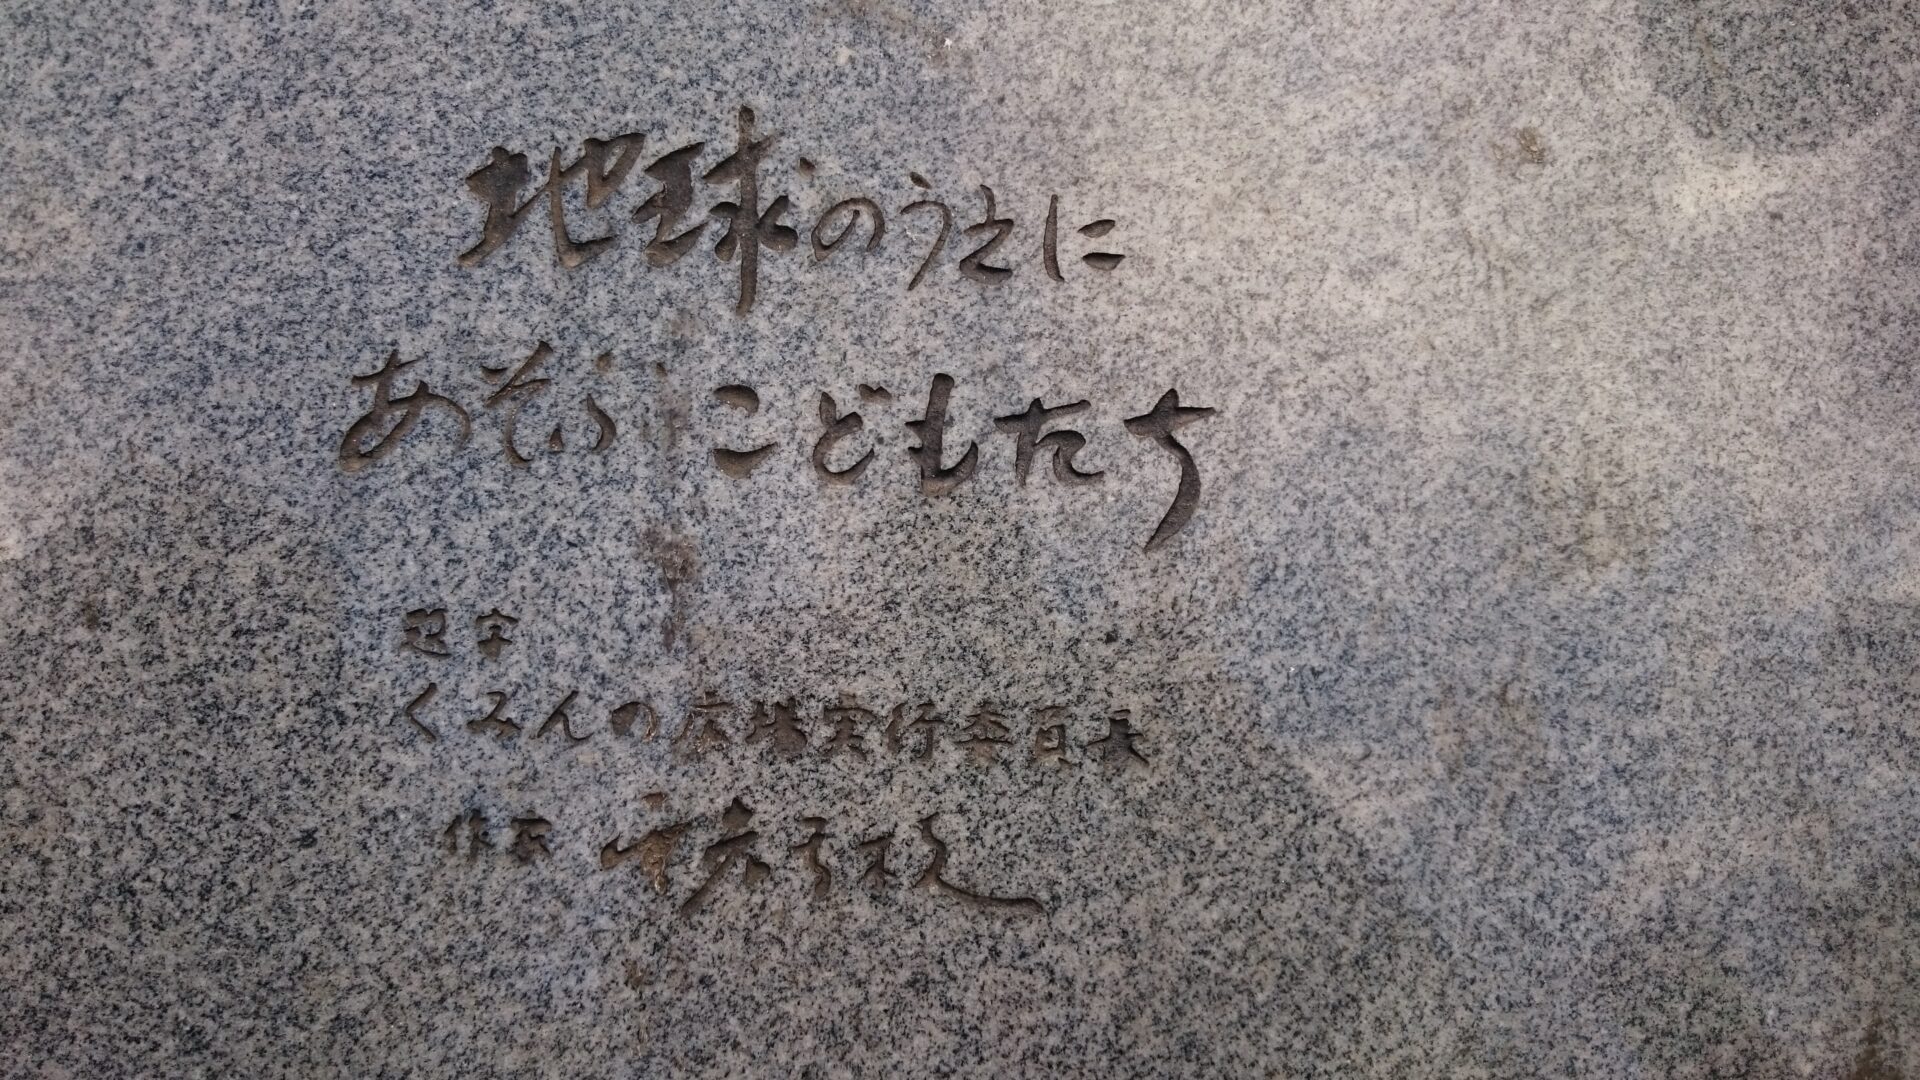 地球のうえに
あそぶ こどもたち
題字
くみんの広場実行委員長
作家